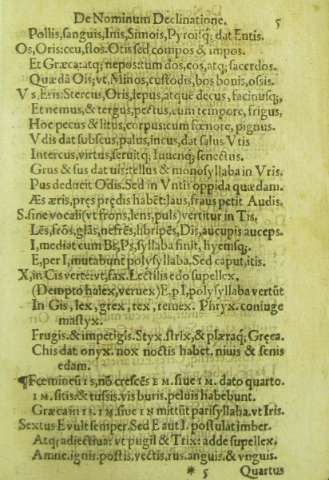 De Nominum Declinatione. 5
Pollis, sanguis, Inis, Simois, Pyroisq; dat Entis.
Os, Oris: ceu, flos. Otis sed compos & impos.
Et Græca: atq; nepos: tum dos, cos, atq; sacerdos.
Quædā Ois; vt, Minos, custodis, bos bonis, ossis.
V s, Eris: Stercus, Oris, lepus, atque decus, facinusq;
Et nemus, & tergus, pectus, cum tempore, frigus,
Hoc pecus & litus, corpus: cum fœnore, pignus.
V dis dat subscus, palus, incus, dat salus Vtis
Intercus, virtus, seruitq; Iuuenq; senectus.
Grus & sus dat uis: tellus & monosyllaba in Vris.
Pus deducit Odis. Sed in Vntis oppida quædam.
Æs æris, pręs prędis habēt: laus, fraus petit Audis.
S. sine vocali (vt frons, lens, puls) vertitur in Tis,
Lēs, frōs, glās, nefrēs, libripēs, Dis, aucupis auceps.
I, mediat cum Bs, Ps, syllaba finit, hyemsq;.
E, per I, mutabunt polysyllaba. Sed caput, itis.
X, in Cis verte: vt, fax. Lectilis edo supellex.
(Dempto halex, veruex) E, p I, polysyllaba vertūt
In Gis, lex, grex, rex, remex. Phryx. coniuge
mastyx.
Frugis. & impetigis. Styx. strix, & plæraq, Gręca.
Chis dat onyx. nox noctis habet, niuis & senis
edam.
¶Fœmineū Is, nō crescēs EM. siue IM. dato quarto.
IM. sitis: & tussis. vis buris, peluis habebunt.
Græcanīs IS, siue IN mittūt parisyllaba. vt Iris.
Sextus E vult semper. Sed E aut I. postulat imber.
Atq; adiectiua: vt pugil & Trix: adde supellex.
Amne. ignis. postis, vectis, rus, anguis. & vnguis.
* 5 Quartus